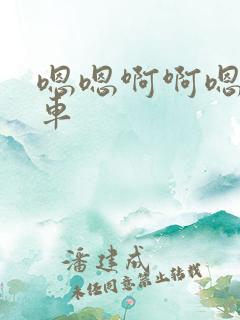 嗯嗯啊啊嗯
車
潘建成
未经同意禁止转载